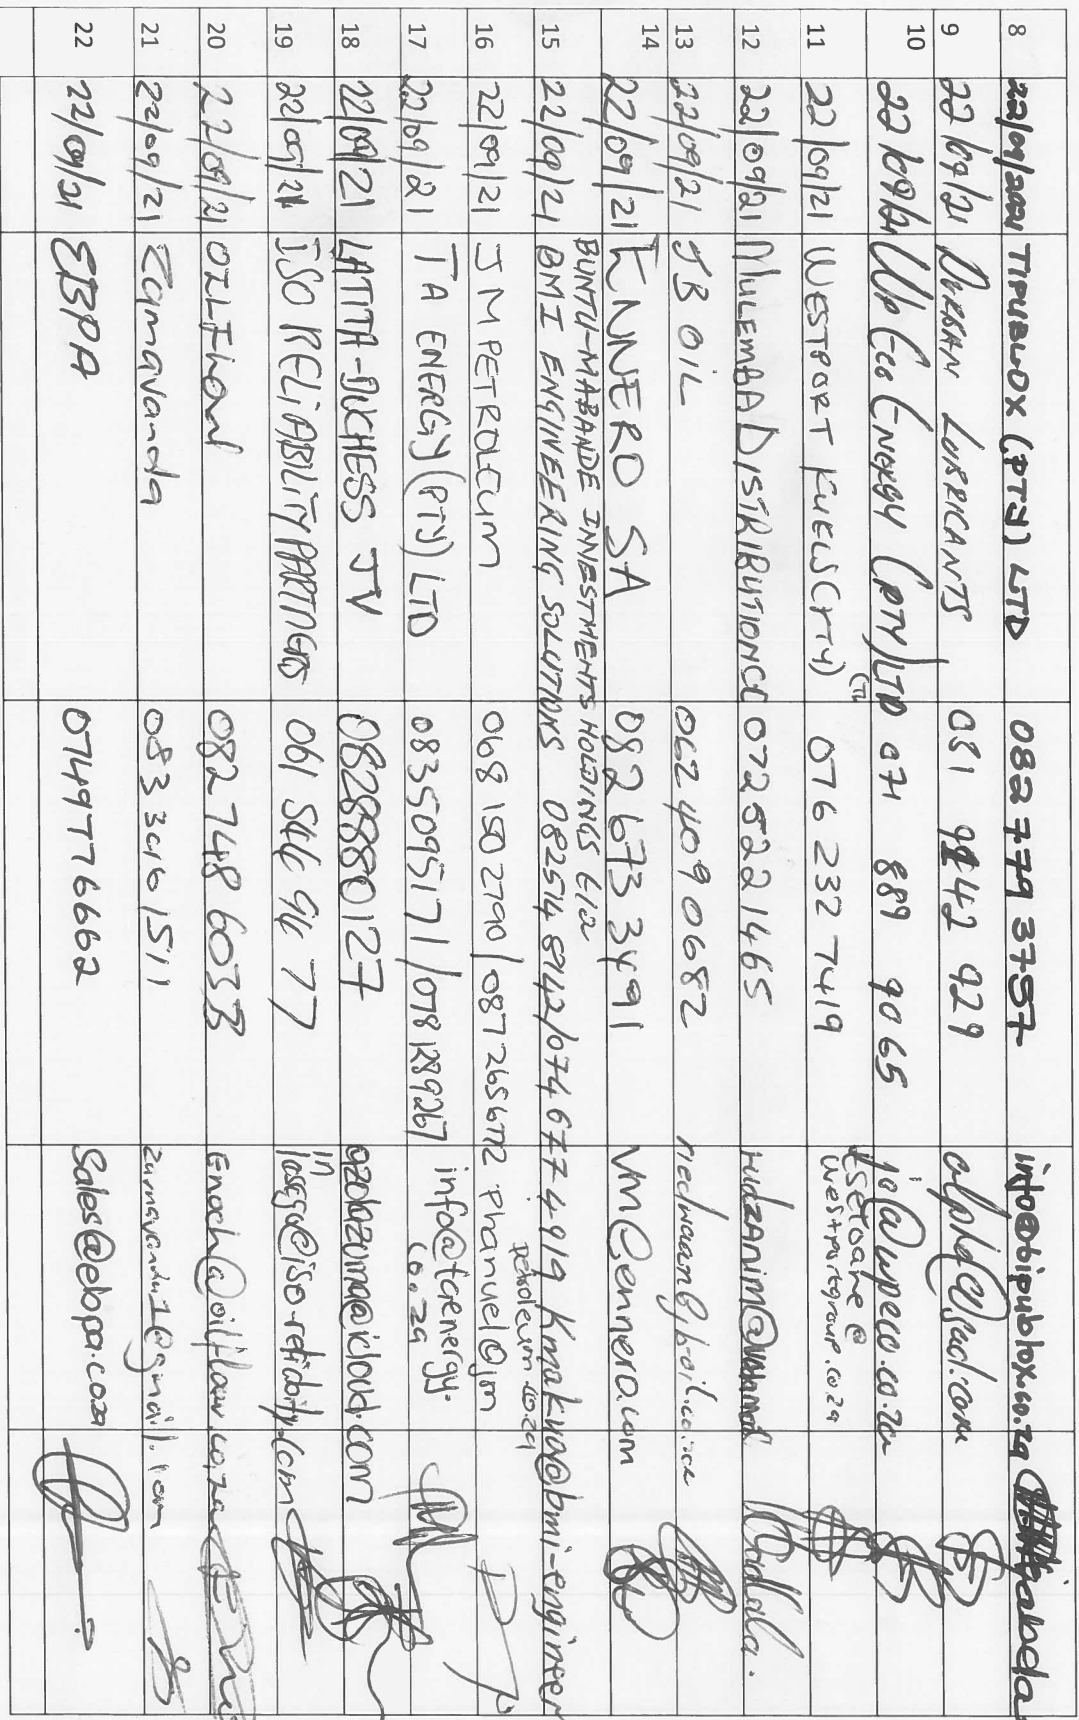 8 22/09/2021 TIPUBLOX (PTY) LTD 082 779 3757
9 22/09/21 DURBAN LUBRICANTS 031 9442 929
10 22/09/21 Up Eco Energy (PTY) LTD 071 889 9065 jo@upeco.co.za
11 22/09/21 WESTPORT FUELS (PTY) 076 232 7419 tsetoane@
westportgroup.co.za
12 22/09/21 MULEMBA DISTRIBUTION CC 072522 1465
13 22/09/21 JB OIL 062 409 0682
14 22/09/21 ENNERO SA 082 673 3491 vm@ennero.com
BUNTU-MABANDE INVESTMENTS HOLDINGS t/a
15 22/09/21 BMI ENGINEERING SOLUTIONS 082514 8142/074677 4919 Kmakwa@bmi-engineer
16 22/09/21 JM PETROLEUM 068 150 2790 / 087 265 6772 Phanuel@jm
petroleum.co.za
17 22/09/21 TA ENERGY (PTY) LTD 0835095171/0781289267 info@taenergy.
co.za
18 22/09/21 LATITA-DUCHESS JV 0828880127 azolazuma@icloud.com
19 22/09/21 ISO RELIABILITY PARTNERS 061 546 94 77
20 22/09/21 OILFlow 082 748 6033 Enoch@oilflow.co.za
21 22/09/21 Zamavanda 083 3016 1511 zamavanda1@gmail.com
22 22/09/21 EBPA 0749776662 Sales@ebpa.co.za